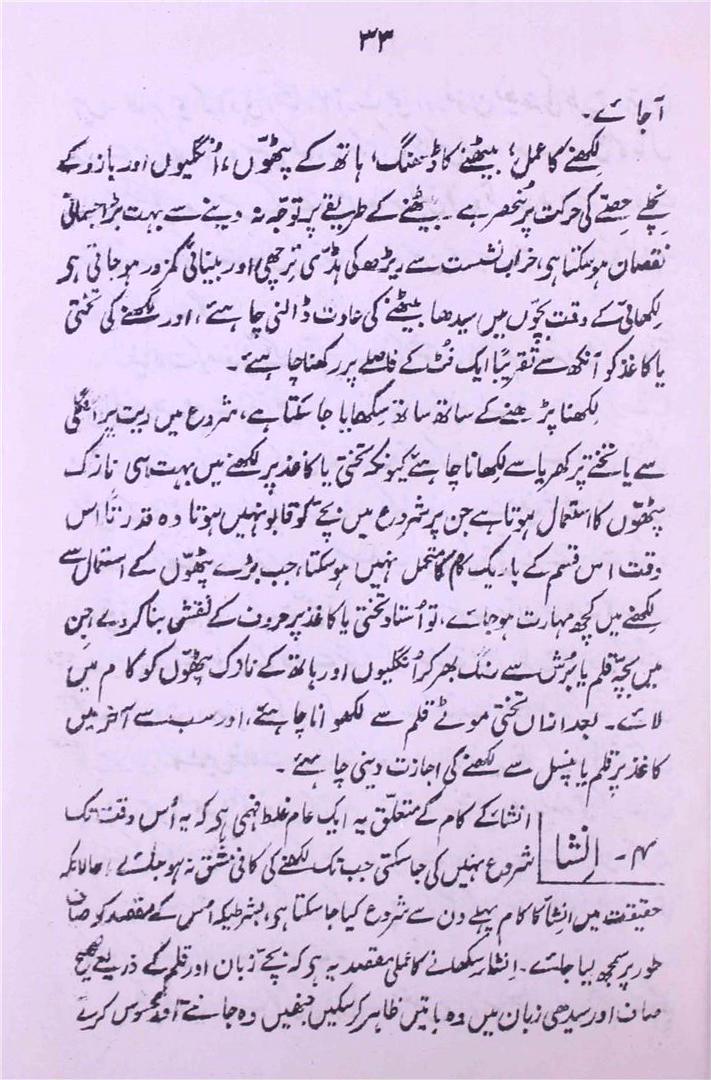 ۳۳
آ جائے۔
لکھنے کا عمل، بیٹھنے کا ڈھنگ، ہاتھ کے پٹھوں، اُنگلیوں اور بازو کے
نچلے حصّے کی حرکت پر منحصر ہے۔ بیٹھنے کے طریقے پر توجّہ نہ دینے سے بہت بڑا جسمانی
نقصان ہو سکتا ہی، خراب نشست سے ریڑھ کی ہڈّی ترچھی اور بینائی کمزور ہو جاتی ہی
لِکھائی کے وقت بچّوں میں سیدھا بیٹھنے کی عادت ڈالنی چاہئے، اور لکھنے کی تختی
یا کاغذ کو آنکھ سے تقریباً ایک فُٹ کے فاصلے پر رکھنا چاہئے۔
لکھنا پڑھنے کے ساتھ ساتھ سِکھایا جا سکتا ہے، شروع میں ریت پر اُنگلی
سے یا تختے پر کھریا سے لکھانا چاہئے کیونکہ تختی یا کاغذ پر لکھنے میں بہت ہی نازک
پٹھوں کا استعمال ہوتا ہے جن پر شروع میں بچّے کو قابو نہیں ہوتا وہ قدرتاً اس
وقت اس قسم کے باریک کام کا متحمل نہیں ہو سکتا، جب بڑے پٹھوں کے استعمال سے
لکھنے میں کچھ مہارت ہو جائے، تو اُستاد تختی یا کاغذ پر حروف کے نقشی بنا کر دے جن
میں بچّہ قلم یا برُش سے رنگ بھر کر اُنگلیوں اور ہاتھ کے نازک پٹھوں کو کام میں
لائے۔ بعد ازاں تختی موٹے قلم سے لکھوانا چاہئے، اور سب سے آخر میں
کاغذ پر قلم یا پنسل سے لکھنے کی اجازت دینی چاہئے۔
۴۔ اِنشا
انشا کے کام کے متعلّق یہ ایک عام غلط فہمی ہی کہ یہ اُس وقت تک
شروع نہیں کی جا سکتی جب تک لکھنے کی کافی مشق نہ ہو جائے، حالانکہ
حقیقت میں انشا کا کام پہلے دن سے شروع کیا جا سکتا ہی، بشرطیکہ اُس کے مقصد کو صاف
طور پر سمجھ لیا جائے۔ اِنشا سِکھانے کا عملی مقصد یہ ہی کہ بچّے زبان اور قلم کے ذریعے صحیح
صاف اور سیدھی زبان میں وہ باتیں ظاہر کر سکیں جنھیں وہ جانتے اور محسوس کرتے